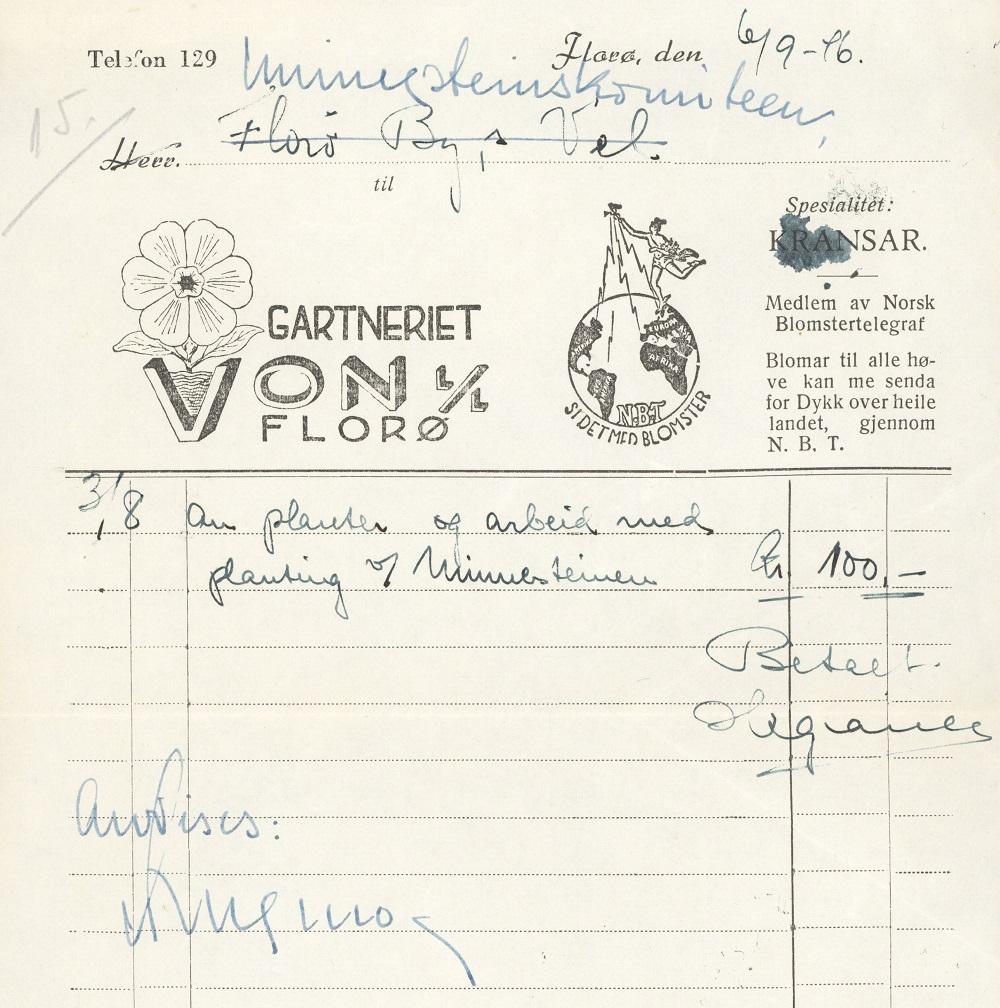 Telefon 129
Florø, den 6/9-46.
Minnesteinskomiteen,
15.
Herr. Florø By,s Vel.
til
GARTNERIET
VON L/L
FLORØ
EUROPA
AFRIKA
N.B.T
SI DET MED BLOMSTER
Spesialitet:
KRANSAR.
Medlem av Norsk
Blomstertelegraf
Blomar til alle hø-
ve kan me senda
for Dykk over heile
landet, gjennom
N. B. T.
3/8 An planter og arbeid med
planting v/ Minnesteinen Kr 100,-
Betalt.
Anvises: